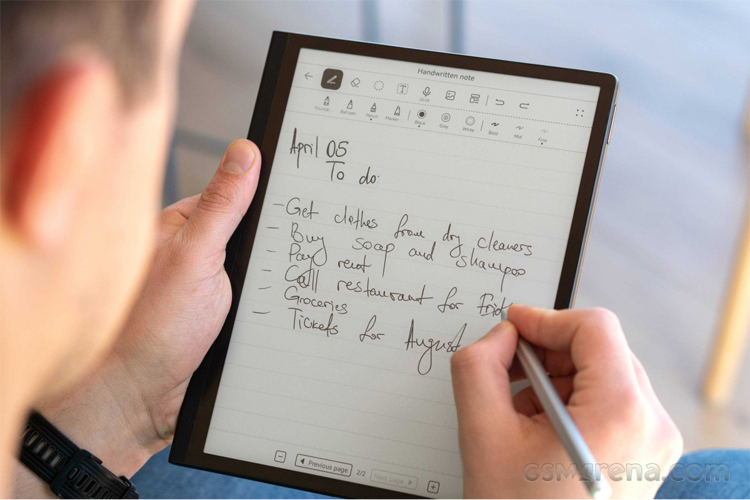 Handwritten note
Black Gray White Bold Mid Fine
April 05
To do:
- Get clothes from dry cleaners
- Buy soap and shampoo
- Pay rent
- Call restaurant for
- Groceries
- Tickets for August
Previous page 2/2 Next page
GSMArena.com